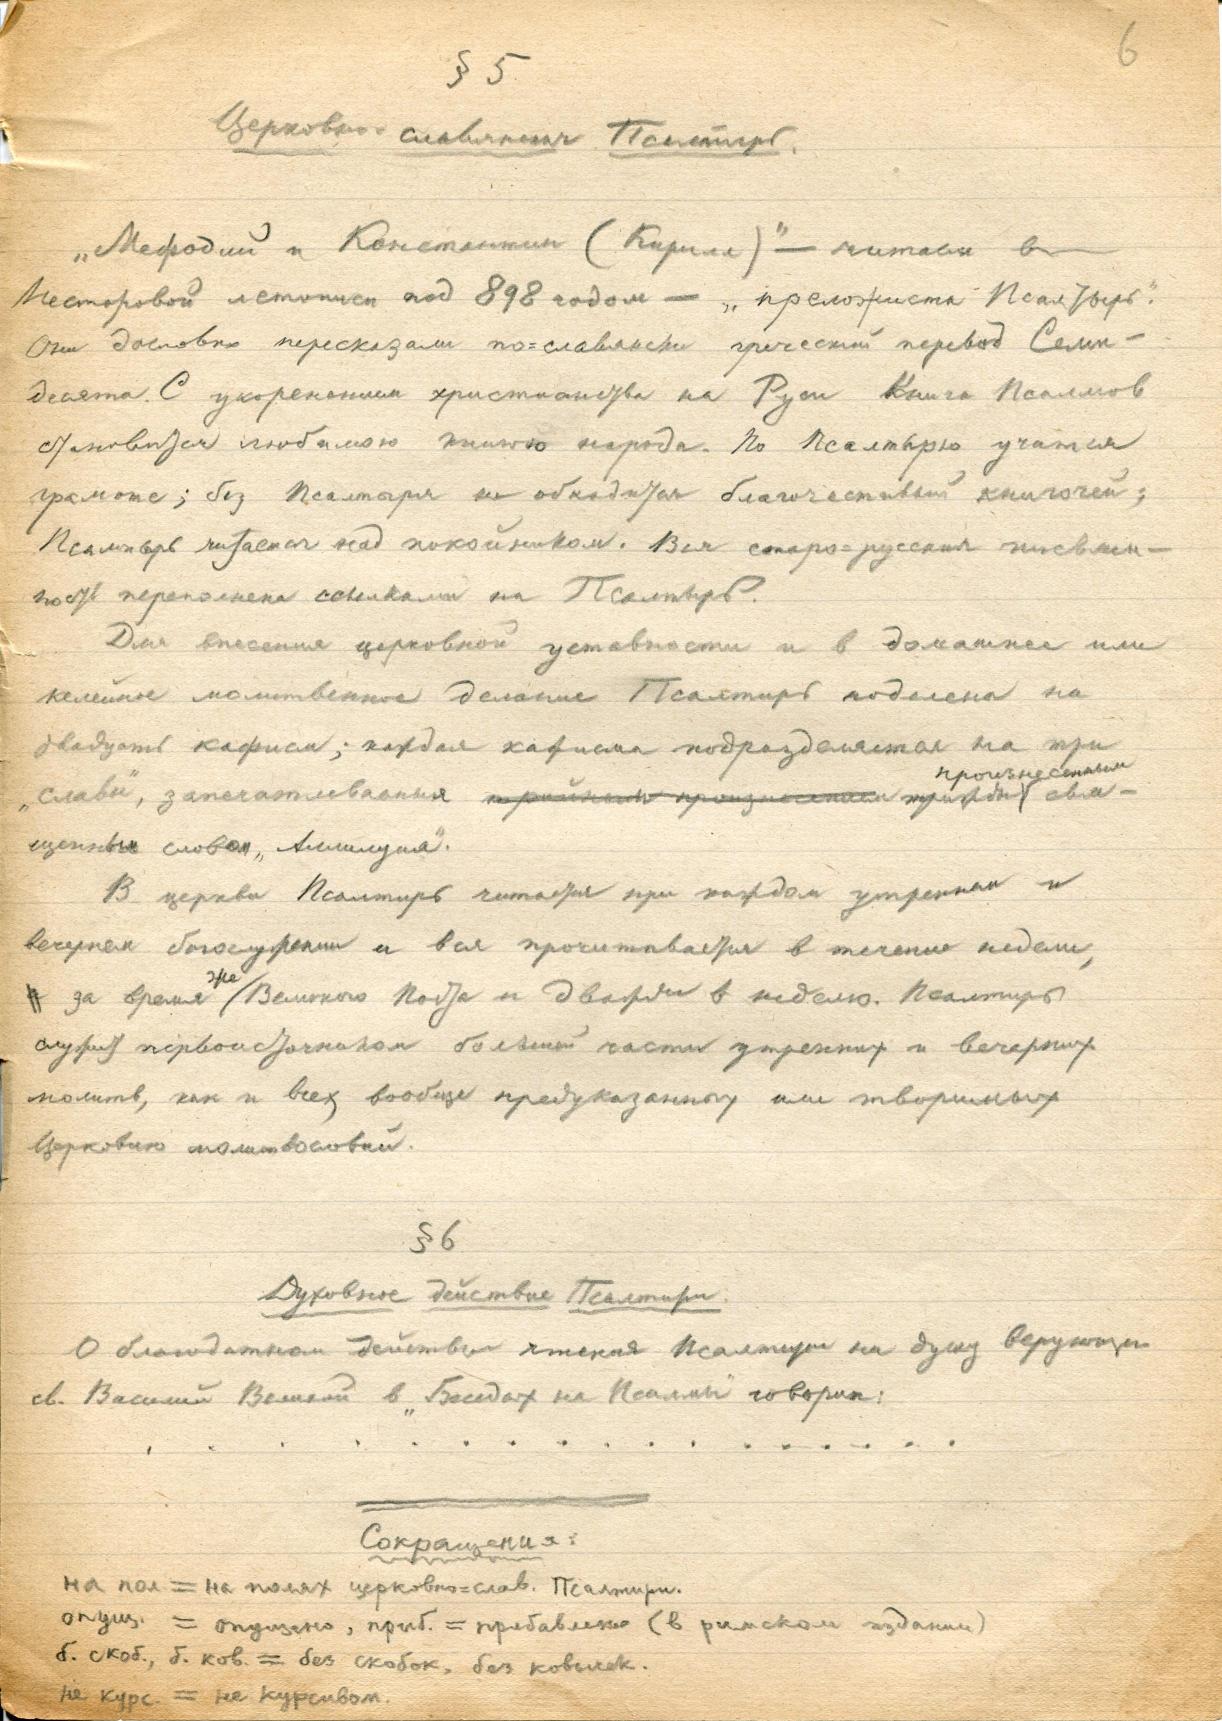 6
§ 5
Церковно-славянская Псалтирь.
„Мефодий и Константин (Кирилл)" — читаем в
Несторовой летописи под 898 годом — „преложиста Псалтырь".
Они дословно пересказали по=славянски греческий перевод Семи-
десяти. С укоренением христианства на Руси Книга Псалмов
становится любимою книгою народа. По Псалтырю учатся
грамоте; без Псалтыря не обходится благочестивый книгочей;
Псалтырь читается над покойником. Вся старо=русская письмен-
ность переполнена ссылками на Псалтырь.
Для внесения церковной уставности и в домашнее или
келейное молитвенное делание Псалтирь поделена на
двадцать кафисм; каждая кафисма подразделяется на три
произнесенным
„славы", запечатлеваемыя тройным произнесением трижды свя-
щенным словом „Аллилуия".
В церкви Псалтирь читается при каждом утреннем и
вечернем богослужении и вся прочитывается в течение недели,
же
за время Великого Поста и дважды в неделю. Псалтирь
служит первоисточником большей части утренних и вечерних
молитв, как и всех вообще предуказанных или творимых
Церковию молитвословий.
§ 6
Духовное действие Псалтири.
О благодатном действии чтения Псалтири на душу верующих
св. Василий Великий в „Беседах на Псалмы" говорит:
. . . . . . . . . . . . . . . . . .
Сокращения:
на пол = на полях церковно=слав. Псалтири.
опущ. = опущено, приб. = прибавлено (в римском издании)
б. скоб., б. ков. = без скобок, без ковычек.
не курс. = не курсивом.